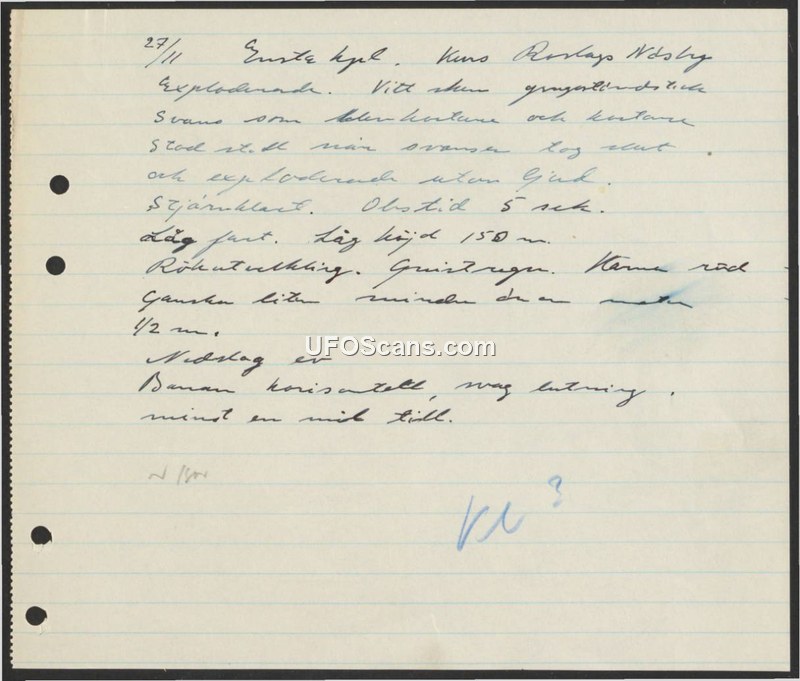 27/11 Ensta kpl. Kurs Roslags Näsby
Exploderade. Vitt sken
Svans som blev kortare och kortare
Stod still när svansen tog slut.
och exploderade utan ljud.
Stjärnklart. Obstid 5 sek.
Låg fart. Låg höjd 150 m.
Rökutveckling. Gnistregn. Kärna röd
Ganska liten mindre än en meter
1/2 m.
UFOScans.com
Nedslag ev
Banan horisontell, svag lutning.
minst en mil till.
Kl ?